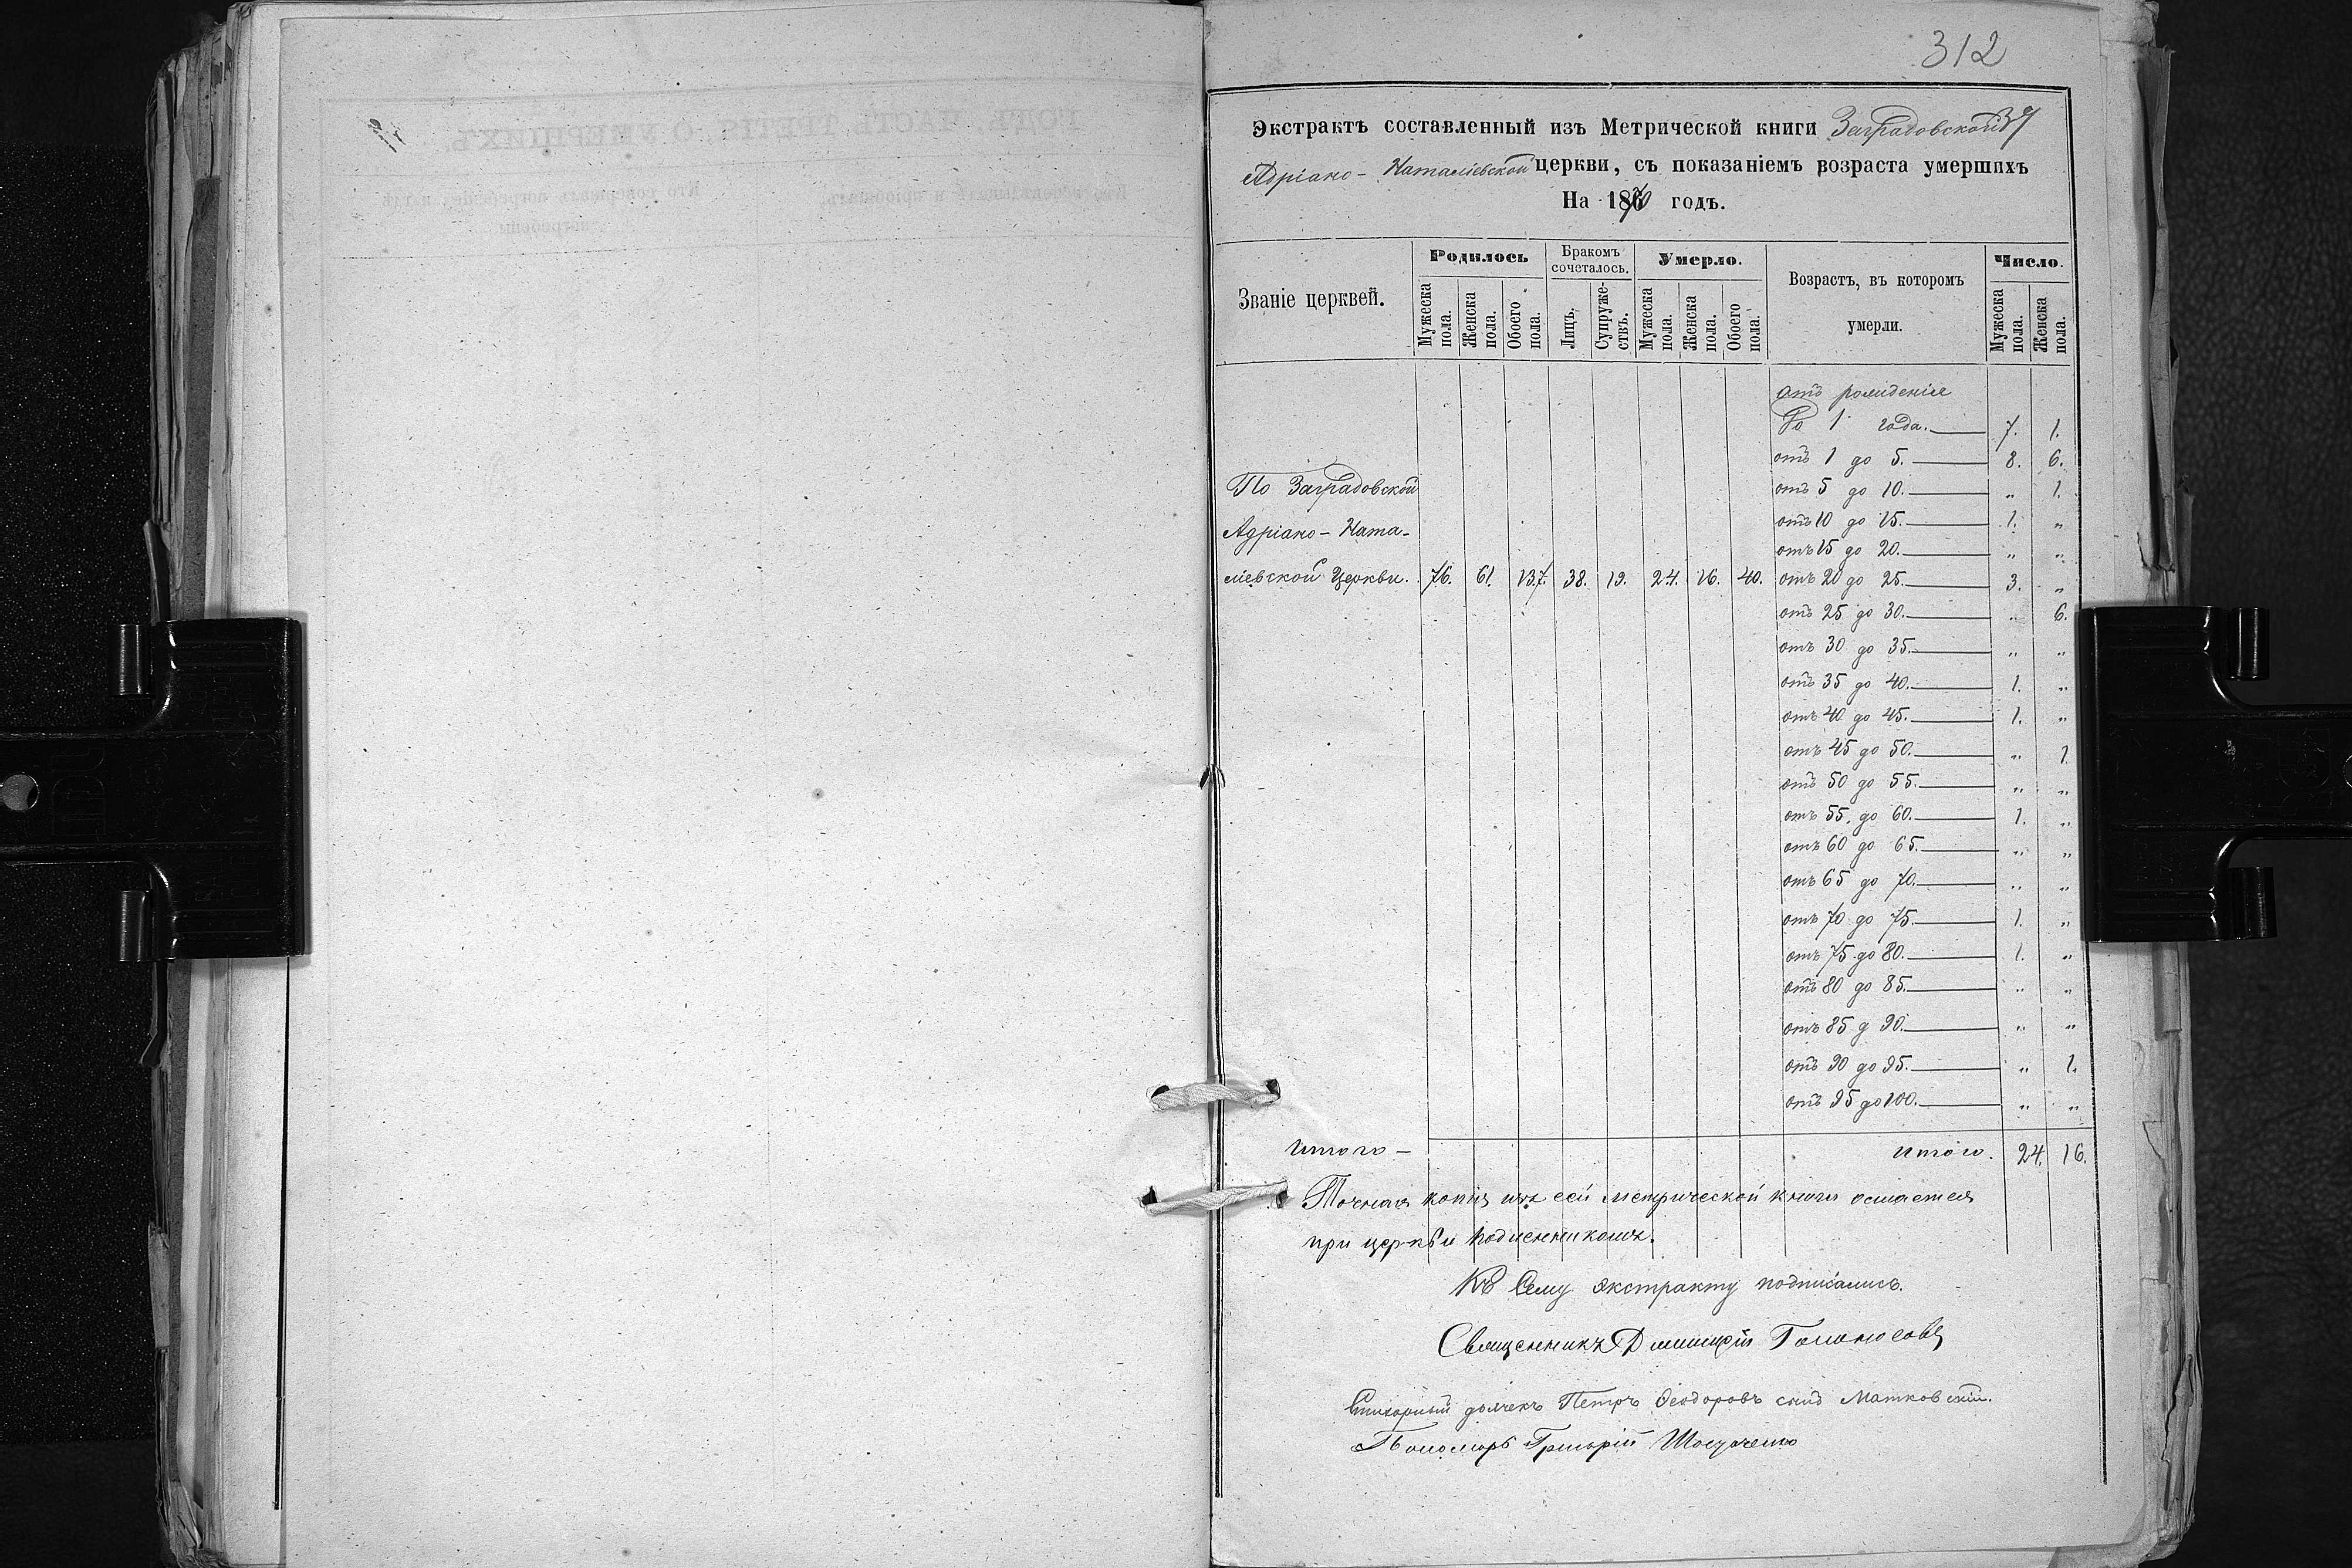 312
Экстрактъ составленный изъ Метрической книги Заградовской 37
Адріано-Наталіевской церкви, съ показаніемъ возраста умершихъ
На 1870 годъ.
Званіе церквей. Родилось Бракомъ сочеталось. Умерло. Возрастъ, въ которомъ умерли. Число.
Мужеска пола. Женска пола. Обоего пола. Лицъ. Супружествъ. Мужеска пола. Женска пола. Обоего пола. Мужеска пола. Женска пола.
отъ рожденія
До 1 года. 7. 1.
отъ 1 до 5. 8. 6.
По Заградовской отъ 5 до 10. " 1.
отъ 10 до 15. 1. "
Адріано-Ната-
отъ 15 до 20. " "
ліевской Церкви. 76. 61. 137. 38. 19. 24. 16. 40. отъ 20 до 25. 3. "
отъ 25 до 30. " 6.
отъ 30 до 35. " "
отъ 35 до 40. 1. "
отъ 40 до 45. 1. "
отъ 45 до 50. " 1
отъ 50 до 55. " "
отъ 55. до 60. 1. "
отъ 60 до 65. " "
отъ 65 до 70. " "
отъ 70 до 75. 1. "
отъ 75 до 80. 1. "
отъ 80 до 85. " "
отъ 85 д 90. " "
отъ 90 до 95. " 1.
отъ 95 до 100. " "
Итого — итого. 24. 16.
Точная копія изъ сей метрической книги
при церкви
Къ сему экстракту подписались.
Священникъ Димитрій Голоносовъ
Стихарный дьячекъ Петръ Феодоровъ сынъ Матковскій.
Пономарь Григорій